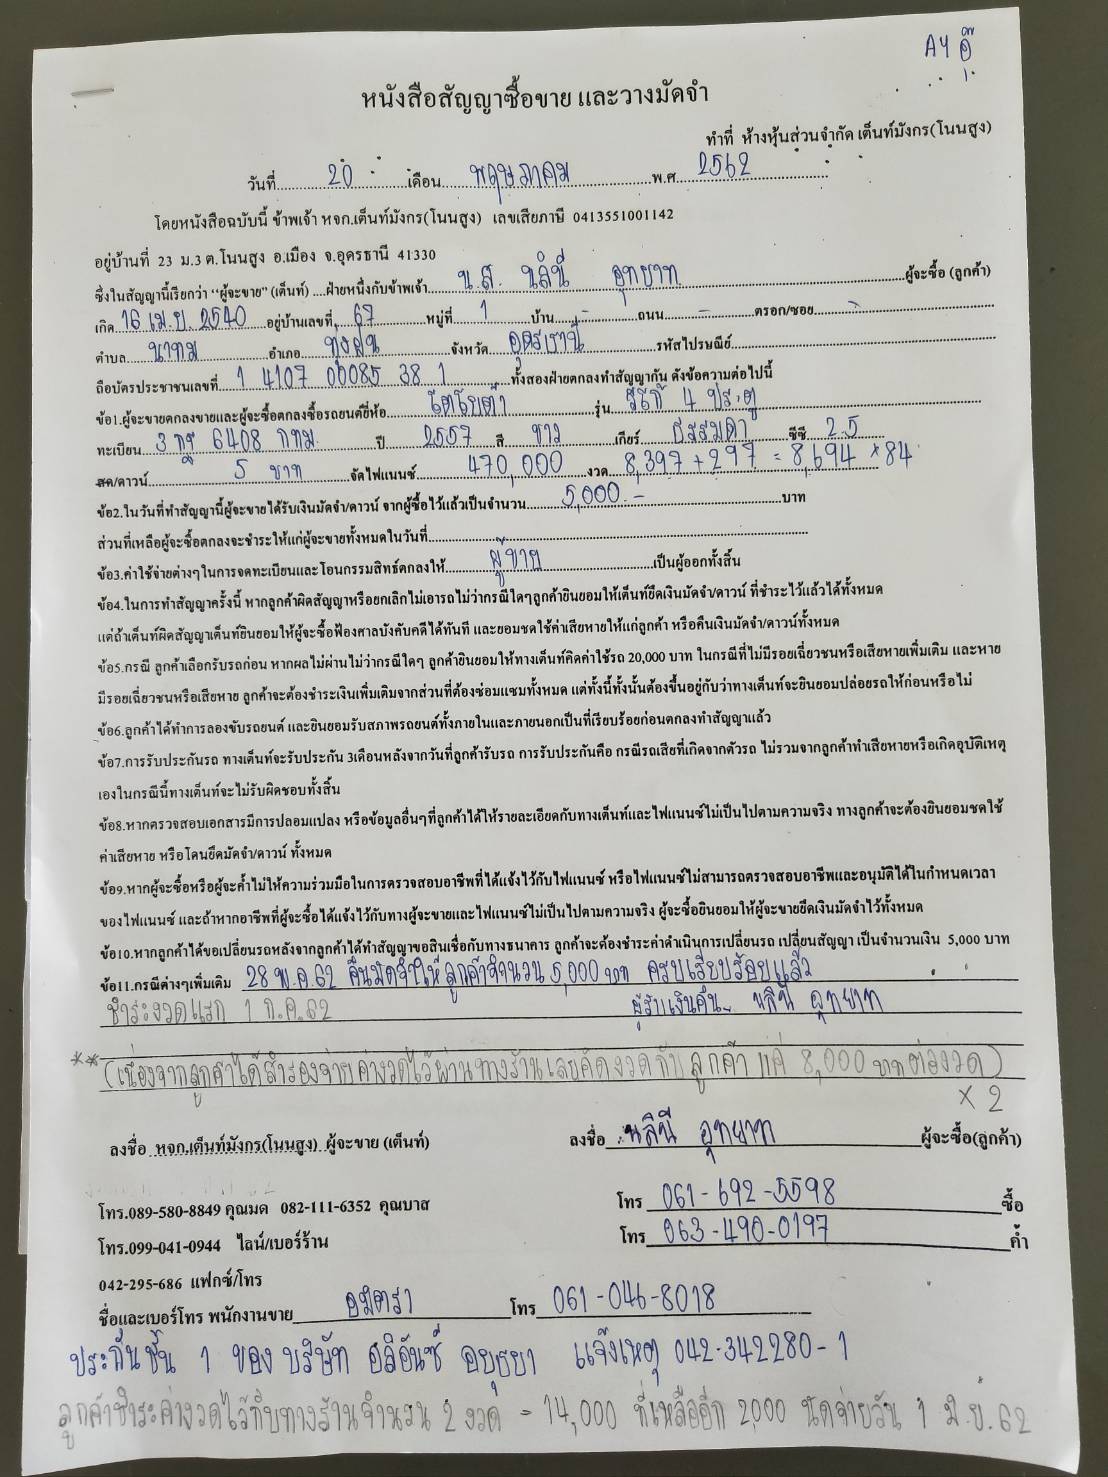 A4 อุ๊
หนังสือสัญญาซื้อขาย และวางมัดจำ
ทำที่ ห้างหุ้นส่วนจำกัด เต็นท์มังกร(โนนสูง)
วันที่ 20 เดือน พฤษภาคม พ.ศ 2562
โดยหนังสือฉบับนี้ ข้าพเจ้า หจก.เต็นท์มังกร(โนนสูง) เลขเสียภาษี 0413551001142
อยู่บ้านที่ 23 ม.3 ต.โนนสูง อ.เมือง จ.อุดรธานี 41330
ซึ่งในสัญญานี้เรียกว่า "ผู้จะขาย" (เต็นท์) ....ฝ่ายหนึ่งกับข้าพเจ้า น.ส. นลินี อุทยาท ผู้จะซื้อ (ลูกค้า)
เกิด 16 เม.ย. 2540 อยู่บ้านเลขที่ 67 หมู่ที่ 1 บ้าน - ถนน - ตรอก/ซอย -
ตำบล นาทม อำเภอ ทุ่งฝน จังหวัด อุดรธานี รหัสไปรษณีย์
ถือบัตรประชาชนเลขที่ 1 4107 00085 38 1 ทั้งสองฝ่ายตกลงทำสัญญากัน ดังข้อความต่อไปนี้
ข้อ1.ผู้จะขายตกลงขายและผู้จะซื้อตกลงซื้อรถยนต์ยี่ห้อ โตโยต้า รุ่น วีโก้ 4 ประตู
ทะเบียน 3 กฐ 6408 กทม. ปี 2557 สี ขาว เกียร์ ธรรมดา ซีซี 2.5
สด/ดาวน์ 5 บาท จัดไฟแนนซ์ 470,000 งวด 8,397 + 297 = 8,694 × 84
ข้อ2.ในวันที่ทำสัญญานี้ผู้จะขายได้รับเงินมัดจำ/ดาวน์ จากผู้ซื้อไว้แล้วเป็นจำนวน 5,000.- บาท
ส่วนที่เหลือผู้จะซื้อตกลงจะชำระให้แก่ผู้จะขายทั้งหมดในวันที่
ข้อ3.ค่าใช้จ่ายต่างๆในการจดทะเบียนและโอนกรรมสิทธ์ตกลงให้ ผู้ขาย เป็นผู้ออกทั้งสิ้น
ข้อ4.ในการทำสัญญาครั้งนี้ หากลูกค้าผิดสัญญาหรือยกเลิกไม่เอารถไม่ว่ากรณีใดๆลูกค้ายินยอมให้เต็นท์ยึดเงินมัดจำ/ดาวน์ ที่ชำระไว้แล้วได้ทั้งหมด
แต่ถ้าเต็นท์ผิดสัญญาเต็นท์ยินยอมให้ผู้จะซื้อฟ้องศาลบังคับคดีได้ทันที และยอมชดใช้ค่าเสียหายให้แก่ลูกค้า หรือคืนเงินมัดจำ/ดาวน์ทั้งหมด
ข้อ5.กรณี ลูกค้าเลือกรับรถก่อน หากผลไม่ผ่านไม่ว่ากรณีใดๆ ลูกค้ายินยอมให้ทางเต็นท์คิดค่าใช้รถ 20,000 บาท ในกรณีที่ไม่มีรอยเฉี่ยวชนหรือเสียหายเพิ่มเติม และหาย
มีรอยเฉี่ยวชนหรือเสียหาย ลูกค้าจะต้องชำระเงินเพิ่มเติมจากส่วนที่ต้องซ่อมแซมทั้งหมด แต่ทั้งนี้ทั้งนั้นต้องขึ้นอยู่กับว่าทางเต็นท์จะยินยอมปล่อยรถให้ก่อนหรือไม่
ข้อ6.ลูกค้าได้ทำการลองขับรถยนต์ และยินยอมรับสภาพรถยนต์ทั้งภายในและภายนอกเป็นที่เรียบร้อยก่อนตกลงทำสัญญาแล้ว
ข้อ7.การรับประกันรถ ทางเต็นท์จะรับประกัน 3เดือนหลังจากวันที่ลูกค้ารับรถ การรับประกันคือ กรณีรถเสียที่เกิดจากตัวรถ ไม่รวมจากลูกค้าทำเสียหายหรือเกิดอุบัติเหตุ
เองในกรณีนี้ทางเต็นท์จะไม่รับผิดชอบทั้งสิ้น
ข้อ8.หากตรวจสอบเอกสารมีการปลอมแปลง หรือข้อมูลอื่นๆที่ลูกค้าได้ให้รายละเอียดกับทางเต็นท์และไฟแนนซ์ไม่เป็นไปตามความจริง ทางลูกค้าจะต้องยินยอมชดใช้
ค่าเสียหาย หรือโดนยึดมัดจำ/ดาวน์ ทั้งหมด
ข้อ9.หากผู้จะซื้อหรือผู้จะค้ำไม่ให้ความร่วมมือในการตรวจสอบอาชีพที่ได้แจ้งไว้กับไฟแนนซ์ หรือไฟแนนซ์ไม่สามารถตรวจสอบอาชีพและอนุมัติได้ในกำหนดเวลา
ของไฟแนนซ์ และถ้าหากอาชีพที่ผู้จะซื้อได้แจ้งไว้กับทางผู้จะขายและไฟแนนซ์ไม่เป็นไปตามความจริง ผู้จะซื้อยินยอมให้ผู้จะขายยึดเงินมัดจำไว้ทั้งหมด
ข้อ10.หากลูกค้าได้ขอเปลี่ยนรถหลังจากลูกค้าได้ทำสัญญาขอสินเชื่อกับทางธนาคาร ลูกค้าจะต้องชำระค่าดำเนินการเปลี่ยนรถ เปลี่ยนสัญญา เป็นจำนวนเงิน 5,000 บาท
ข้อ11.กรณีต่างๆเพิ่มเติม 28 พ.ค.62 คืนมัดจำให้ลูกค้าจำนวน 5,000 บาท ครบเรียบร้อยแล้ว
ชำระงวดแรก 1 ก.ค.62 ผู้รับเงินคืน- นลินี อุทยาท
** (เนื่องจากลูกค้าได้สำรองจ่ายค่างวดไว้ผ่านทางร้านเลยคิดงวดกับลูกค้า แค่ 8,000 บาทต่องวด)
× 2
ลงชื่อ หจก.เต็นท์มังกร(โนนสูง) ผู้จะขาย (เต็นท์) ลงชื่อ นลินี อุทยาท ผู้จะซื้อ(ลูกค้า)
โทร.089-580-8849 คุณมด 082-111-6352 คุณบาส โทร 061-692-5598 ซื้อ
โทร.099-041-0944 ไลน์/เบอร์ร้าน โทร 063-490-0197 ค้ำ
042-295-686 แฟกซ์/โทร
ชื่อและเบอร์โทร พนักงานขาย อมิตรา โทร 061-046-8018
ประกันชั้น 1 ของ บริษัท อลิอันซ์ อยุธยา แจ้งเหตุ 042-342280-1
ลูกค้าชำระค่างวดไว้กับทางร้านจำนวน 2 งวด = 14,000 ที่เหลืออีก 2000 นัดจ่ายวัน 1 มิ.ย. 62